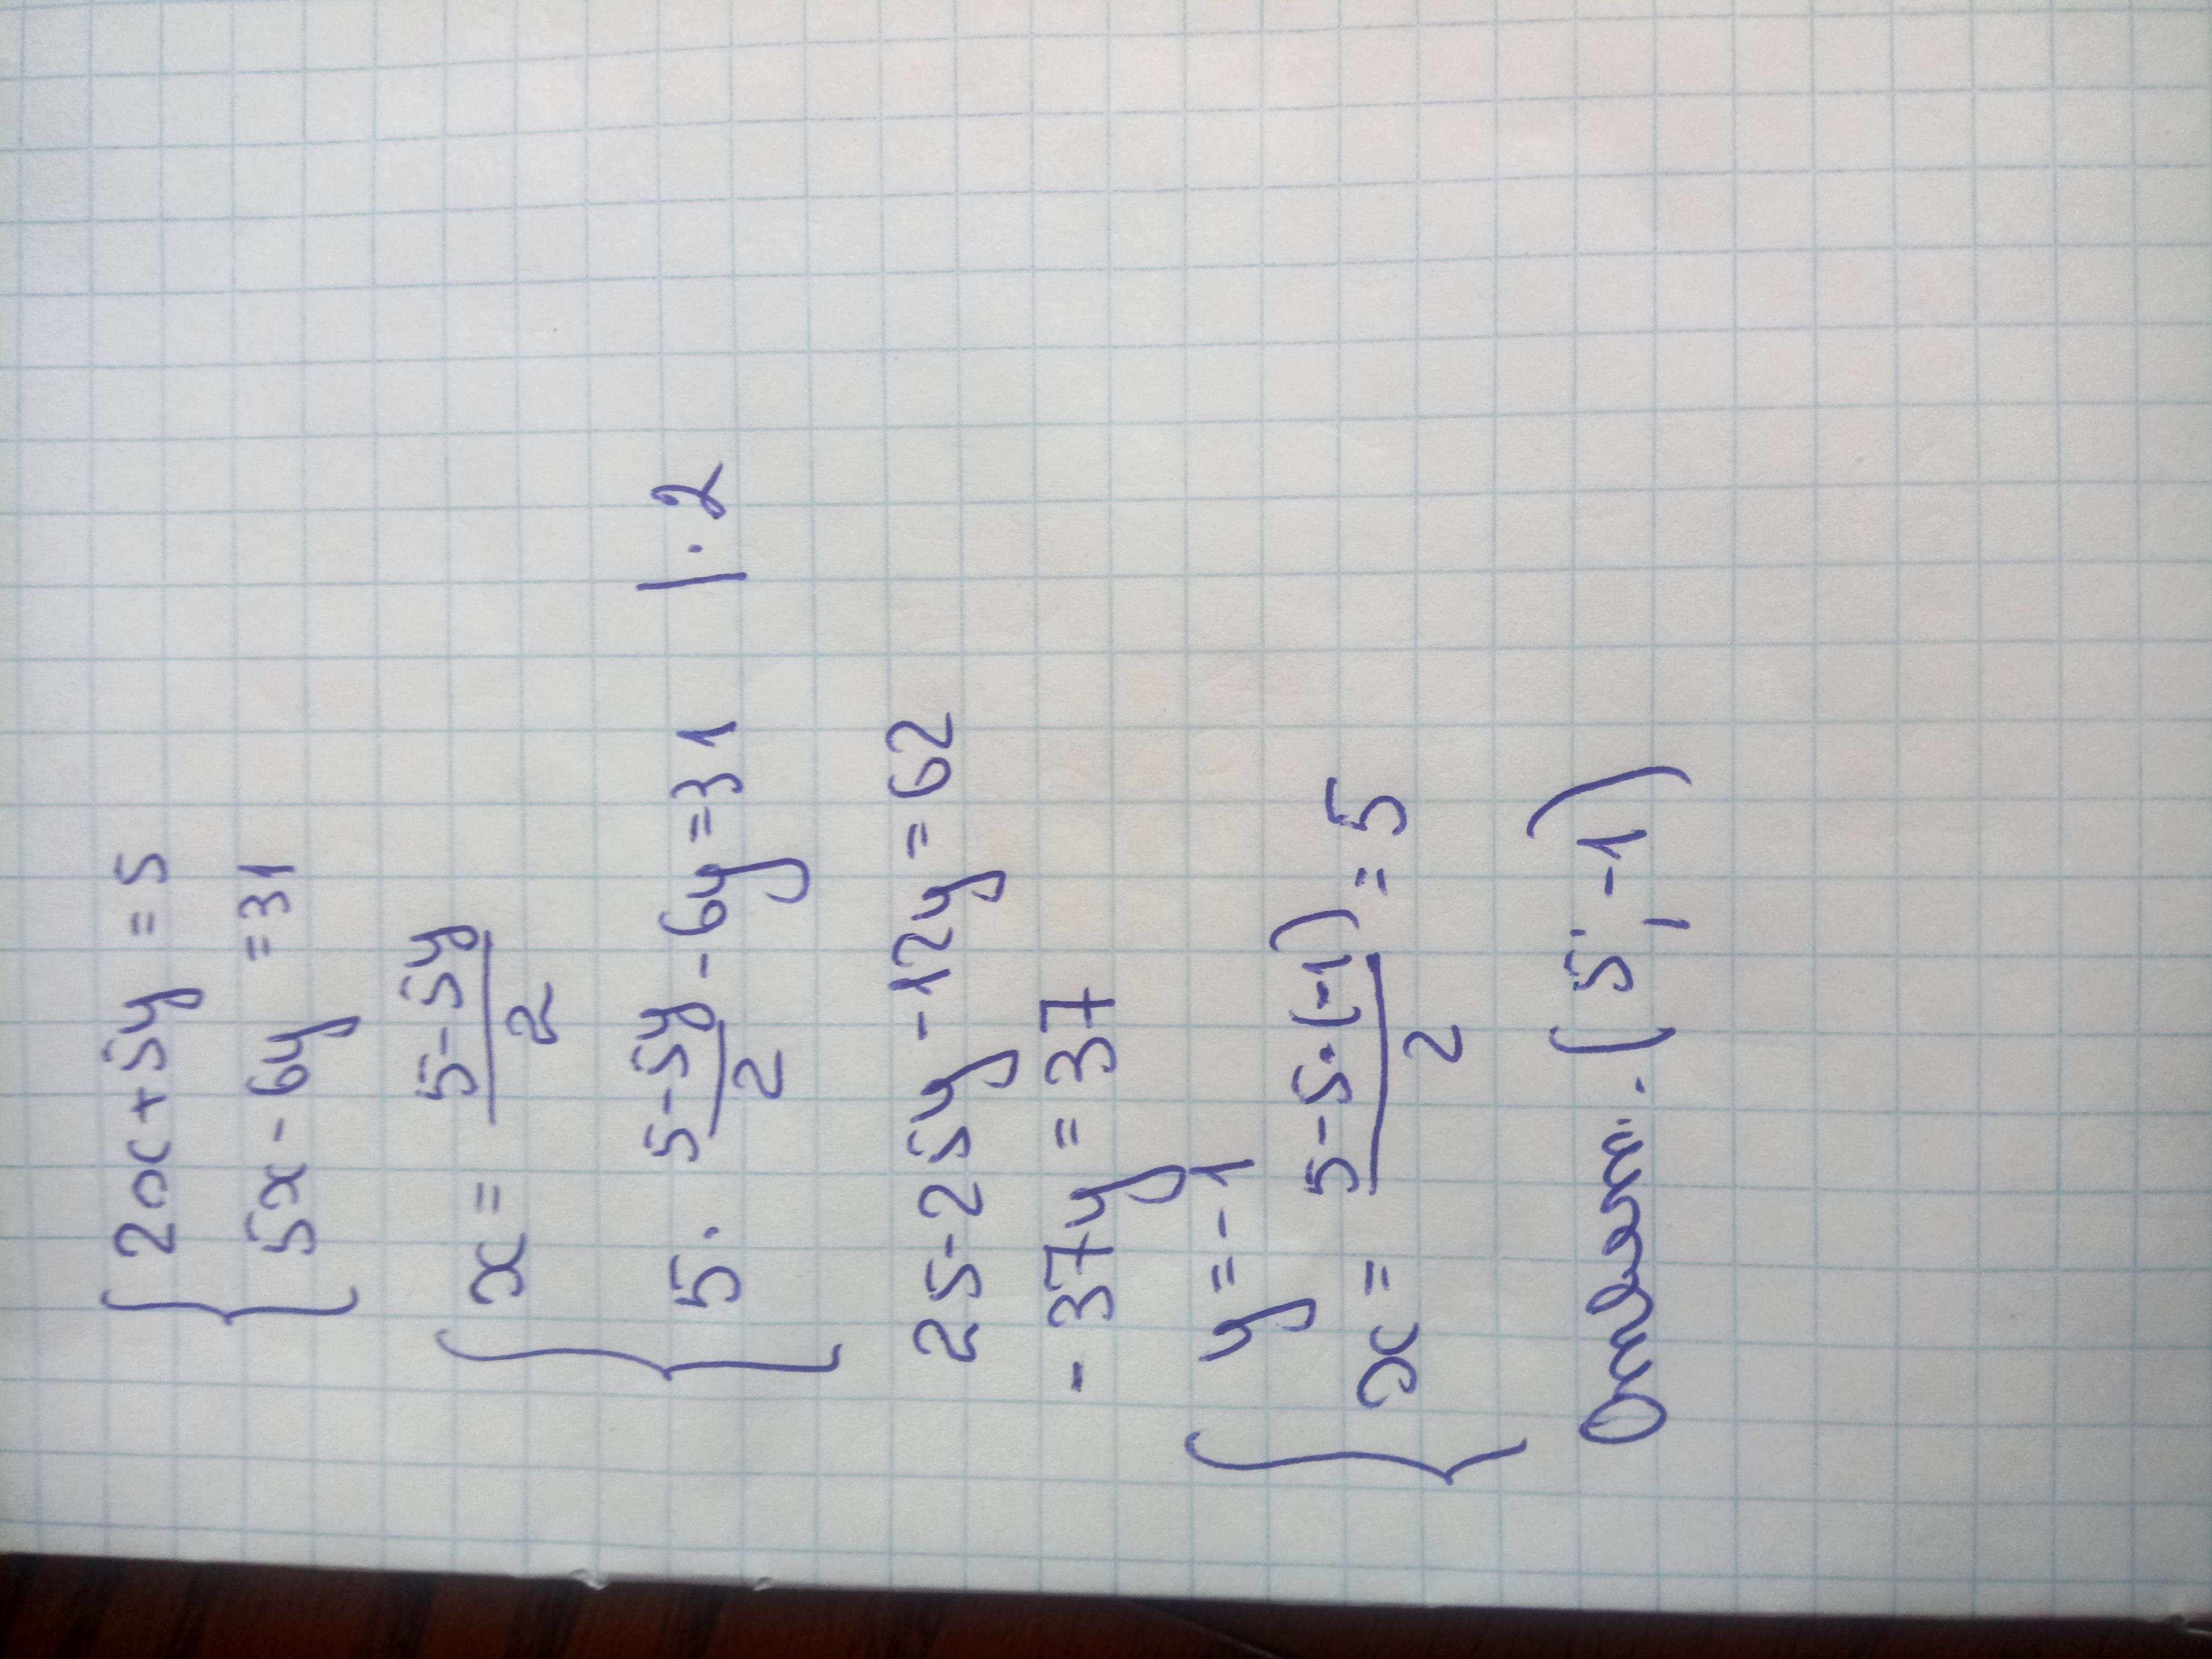 { 2x + 5y = 5
5x - 6y = 31
{ x = (5 - 5y)/2
5 · (5 - 5y)/2 - 6y = 31 | · 2
25 - 25y - 12y = 62
- 37y = 37
{ y = -1
x = (5 - 5 · (-1))/2 = 5
Ответ. (5; -1)